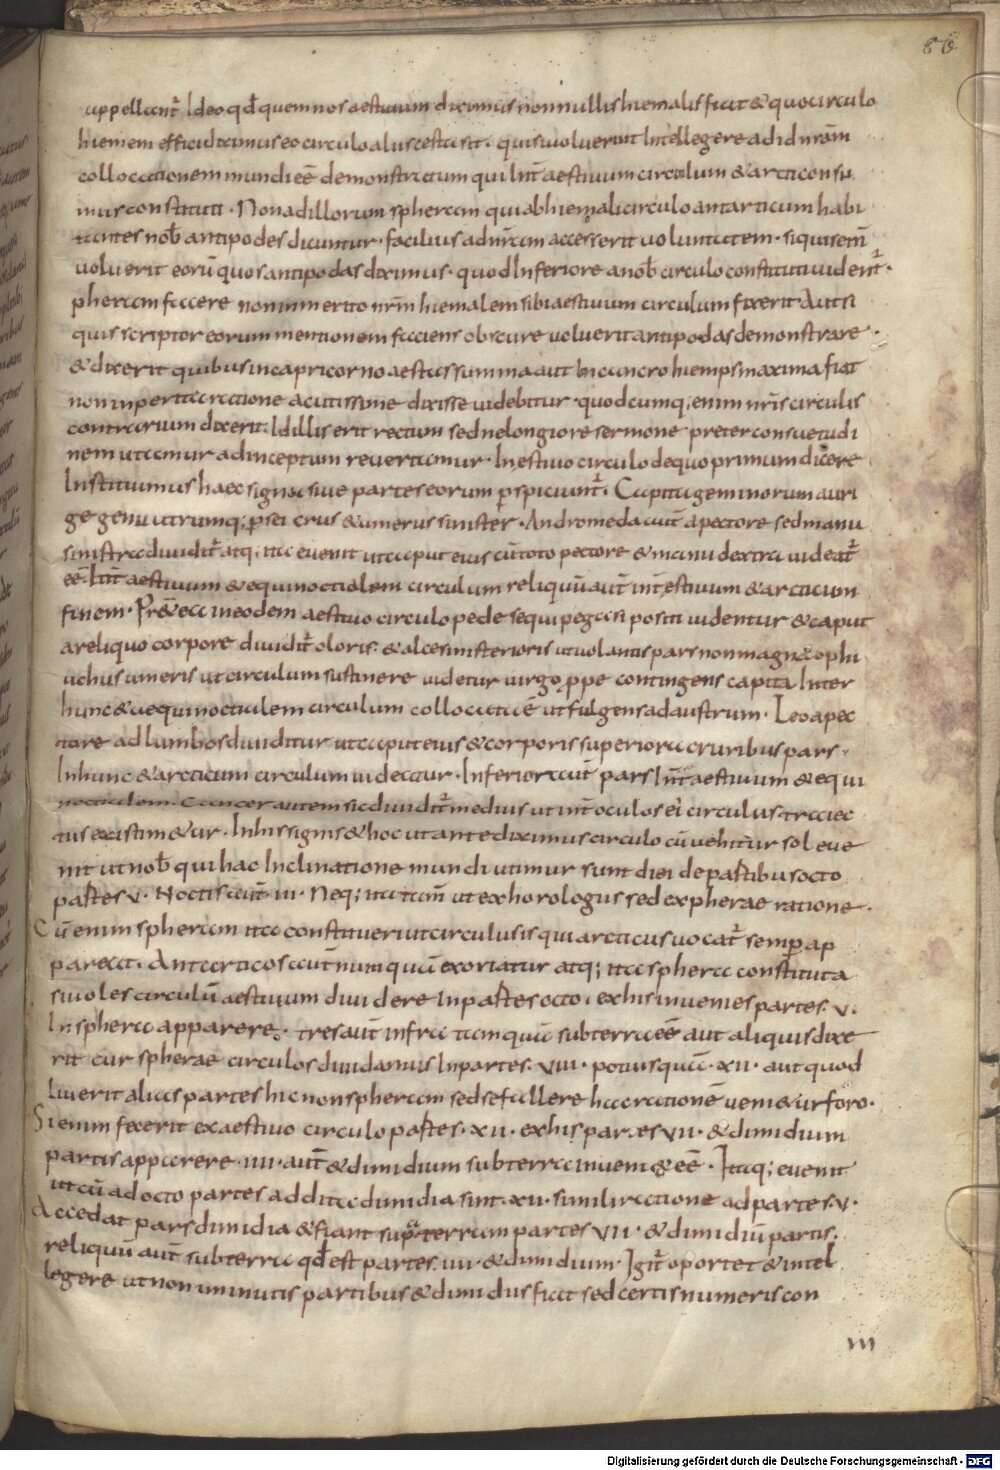 86
appellant̄ Ideo qđ quem nos aestiuum diximus nonnullis hiemalis fiat & quo circulo
hiemem effici diximus eo circulo aliis aestas sit. quis uoluerit Intellegere ad id nr̄am
collocationem mundi eē demonstratum qui Int̄ aestiuum circulum & arcticon su
mus constituti. Non ad illorum spheram qui ab hiemali circulo antarticum habi
tantes nob̄ antipodes dicuntur. facilius ad nr̄am accesserit uoluntatem. si quis enī
uoluerit eorū quos antipodas diximus. quod Inferiore a nob̄ circulo constituti uident̄.
pheram facere non inmerito nr̄m hiemalem sibi aestiuum circulum fixerit Aut si
quis scriptor eorum mentionem faciens obscure uoluerit antipodas demonstrare.
& dixerit quibus in capricorno aestas summa aut In cancro hiemps maxima fiat
non inperita ratione acutissime dixisse uidebitur. quodcumq; enim nr̄is circulis
contrarium dixerit. Id illis erit rectum sed ne longiore sermone preter consuetudi
nem utamur ad inceptum reuertamur. In estiuo circulo de quo primum dicere
Instituimus haec signa siue partes eorum pspiciunt̄. Capita geminorum auri
ge genu utrumq; psei crus & umerus sinister. Andromeda aut̄ a pectore sed manu
sinistra diuidit̄ atq; ita euenit ut caput eius cū toto pectore & manu dextra uideat̄
eē. Int̄ aestiuum & equinoctialem circulum reliquū aut̄ int̄ estiuum & arcticum
finem. Pr̄&ea in eodem aestiuo circulo pede s equi pegasi positi uidentur & caput
a reliquo corpore diuidit̄ oloris. & alce sinisterioris ut uolantis pars non magna & ophi
uchus umeris ut circulum sustinere uidetur uirgo ppe contingens capita Inter
hunc & aequinoctialem circulum collocata ē ut fulgens ad austrum. Leo a pec
tore ad lumbos diuiditur ut caput eius & corporis superiora cruribus pars.
In hunc & arcticum circulum uideatur. Inferior aut̄ pars Int̄ aestiuum & equi
noctialem. Cancer autem sic diuidit̄ medius ut int̄ oculos ei circulus traiec
tus existim&ur. In his signis & hoc ut ante diximus circulo cū uehitur sol eue
nit ut nob̄ qui hac Inclinatione mundi utimur sunt diei de partibus octo
partes v. Noctis aut̄ iii. Neq; ita tam̄ ut ex horologiis sed ex pherae ratione.
Cū enim spheram ita constituerit circulus is qui arcticus uocat̄ semp ap
pareat. Antarticos aut̄ numquā exoriatur atq; ita sphera constituta
si uoles circulū aestiuum diuidere In partes octo. ex his inuenies partes. v.
In sphera apparere. tres aut̄ infra tamquā sub terra eē aut aliquis dixe
rit cur spherae circulos diuidamus In partes. viii. potius quā. xii. aut quod
Iuuerit alias partes hic non spheram sed se fallere hac rationē ueni&ur foro.
Si enim fecerit ex aestiuo circulo partes. xii. ex his par.es vii. & dimidium
partis apparere. iiii. aut̄ & dimidium sub terra inueni& eē. Itaq; euenit
ut cū ad octo partes addita dimidia sint. xii. simili ratione ad partes. v.
Accedat pars dimidia & fiant supra terram partes vii. & dimidiū partis.
reliquū aut̄ sub terra qđ est partes. iiii. & dimidium. Igit̄ oportet & intel
legere ut non minutis partibus & dimidiis fiat sed certis numeris con
VIII
Digitalisierung gefördert durch die Deutsche Forschungsgemeinschaft - DFG